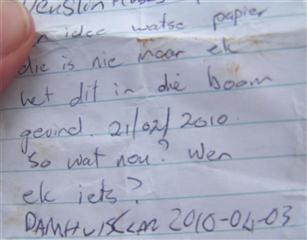 idee watse papier
die is nie maar ek
het dit in die boom
gevind. 21/02/2010.
So wat nou? Wen
ek iets?
2010-04-03